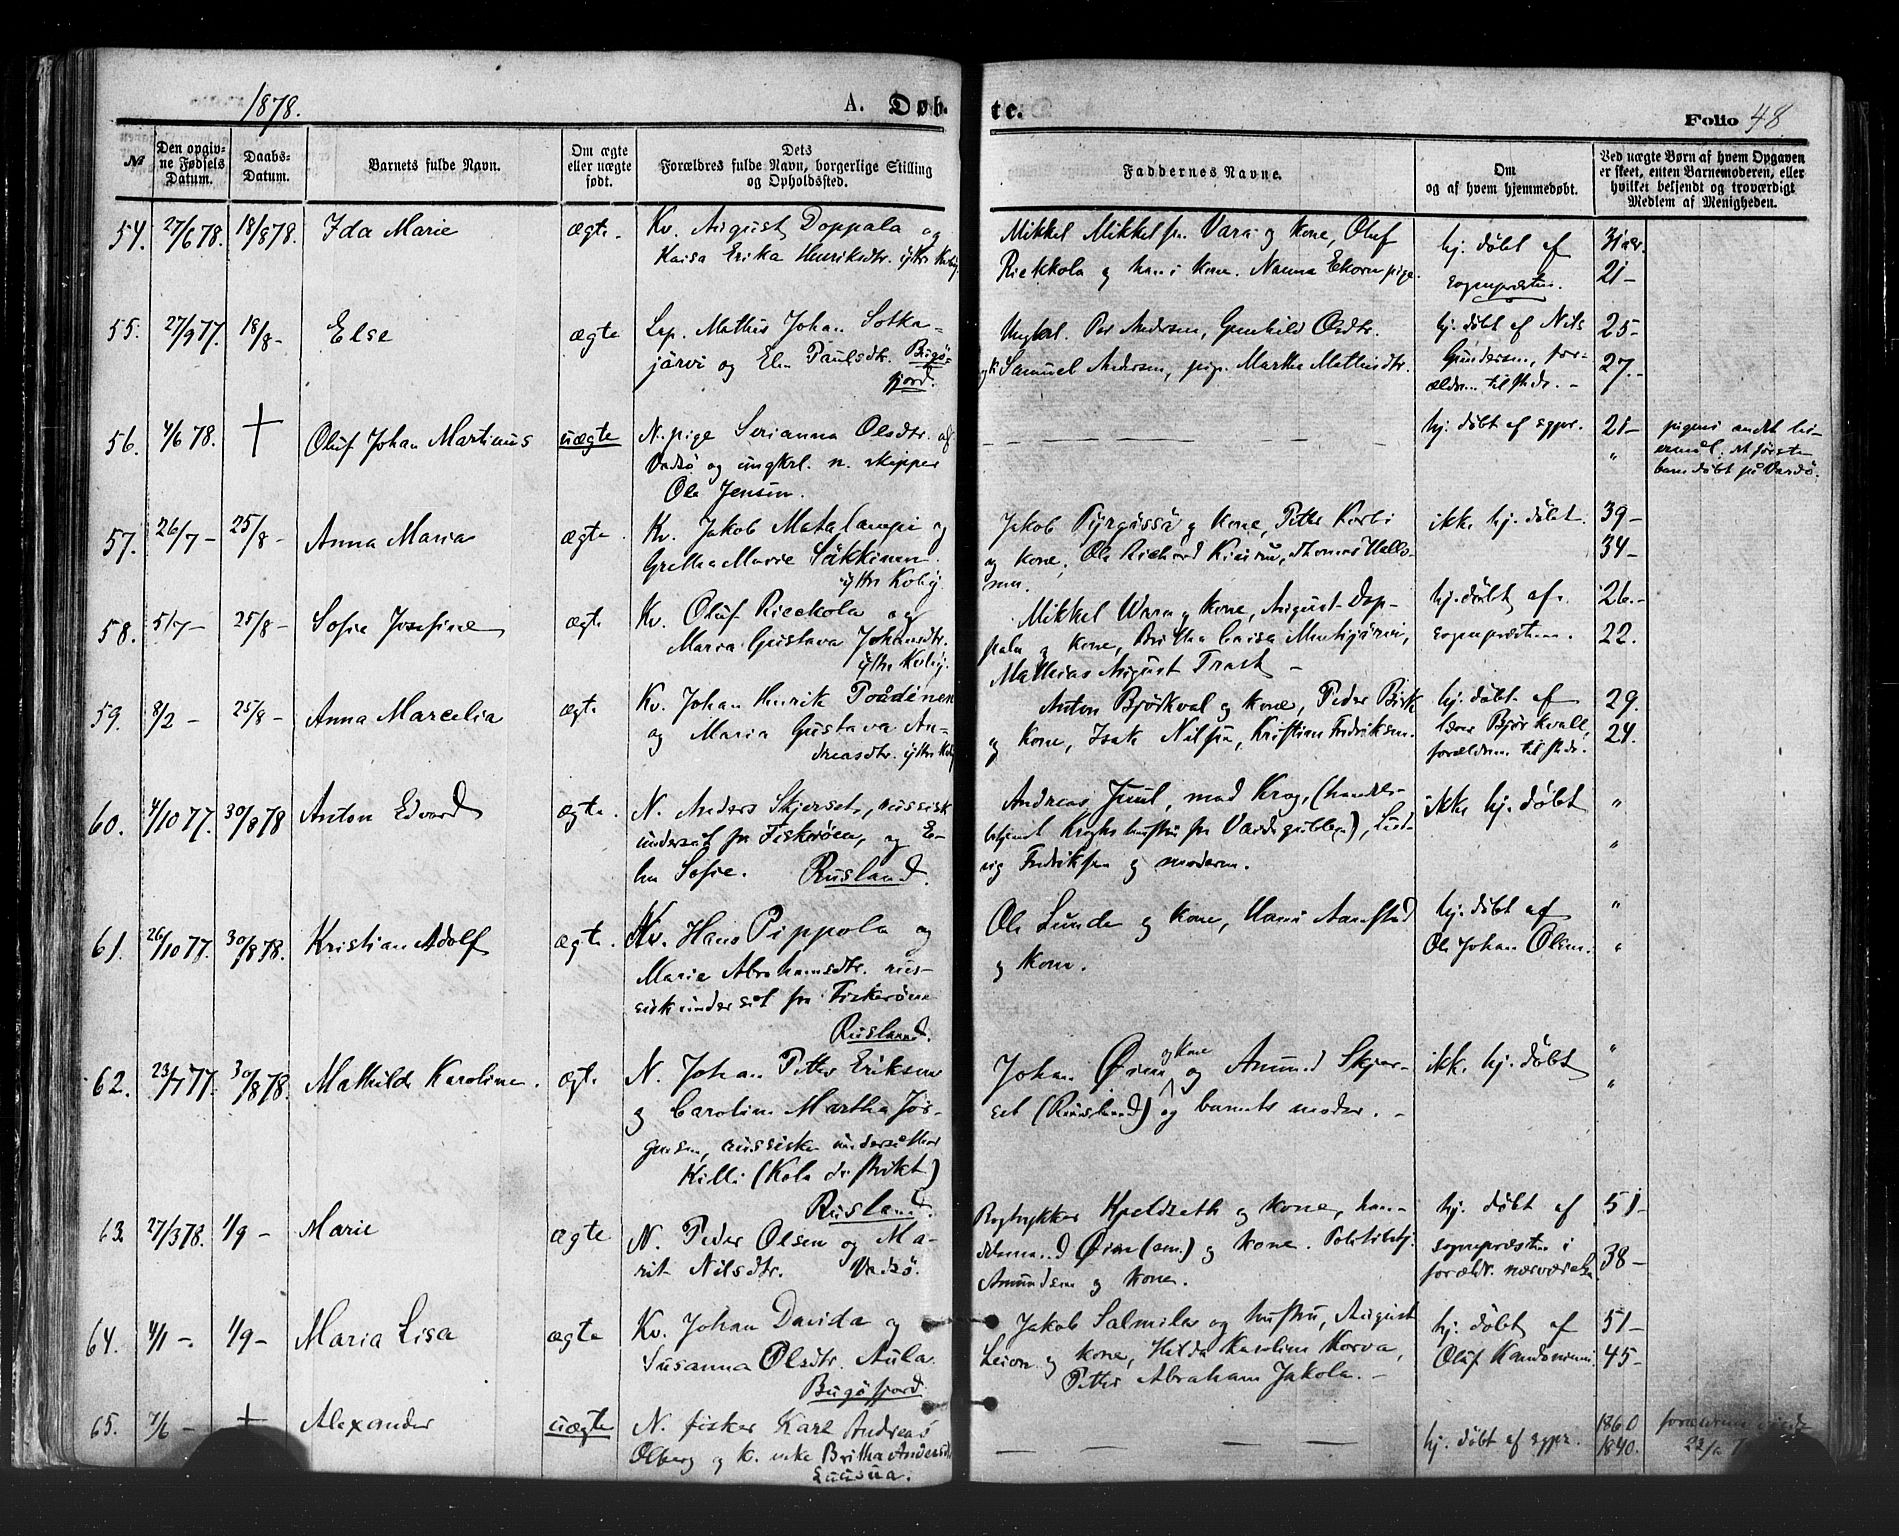 1878.
A. Døb-
te.
Folio 48.
№
Den opgiv-
ne Fødsels
Datum.
Daabs-
Datum.
Barnets fulde Navn.
Om ægte
eller uægte
født.
Dets
Forældres fulde Navn, borgerlige Stilling
og Opholdssted.
Faddernes Navne.
Om
og af hvem hjemmedøbt.
Ved uægte Børn af hvem Opgaven
er skeet, enten Barnemoderen, eller
hvilket bekjendt og troværdigt
Medlem af Menigheden.
54. 27/6 78. 18/8 78. Ida Marie ægte.
Kv. August Doppala og
Kaisa Erika Henriksdtr. yttre Kbby.
Mikkel Mikkelsen Vara og kone, Oluf
Riekkola og hans kone. Nanna Ekorn pige.
hj. døbt af
sognepræsten.
31 aar.
21 —
55. 27/9 77. 18/8 — Else ægte
Lrp. Mathis Johan Sotka-
järvi og Elen Paulsdtr. Bugø-
fjord.
Ungkrl. Per Andersen, Gunhild Olsdtr.
Samuel Andersen, pige Marthe Mathisdtr.
hj. døbt af Nils
Gundersen, for-
ældrene tilstede. —
25 —
27. —
56. 4/6 78. † Oluf Johan Martinus uægte
N. pige Serianna Olsdtr. af
Vadsø og ungkrl. n. skipper
Ole Jensen.
hj. døbt af sgpr.
21 —
"
pigens andet lei-
ermål; det første
barn døbt på Vardø.
57. 26/7 — 25/8 — Anna Maria ægte.
Kv. Jakob Matalampi og
Gretha Marie Säkkinen
yttre Kbby.
Jakob Pyrgässä og kone, Petter Korbi
og kone, Ole Richard , Thomas
ikke hj. døbt.
39 —
34 —
58. 5/7 — 25/8 — Sofie Josefine ægte
Kv. Oluf Rieckola og
Maria Gustava Johansdtr.
yttre Kbby.
Mikkel Wara og kone, August Dop-
pala og kone, Britha Caisa ,
Mathias August Trast —
hj. døbt af
sognepræsten.
26. —
22.
59. 8/2 — 25/8 — Anna Marcelia ægte
Kv. Johan Henrik Poådinen
og Maria Gustava An-
dreasdtr. yttre Kbby
Anton Bjørkval og kone, Peder Birk
og kone, Isak Nilsen, Kristian Fredriksen.
hj. døbt af
lærer Bjørkvall,
forældrene tilstede.
29.
24.
60. 4/10 77. 30/8 78 Anton Edvard ægte.
N. Anders Skjerset, russisk
undersåt fra Fiskerøen, og E-
len Sofie. Rusland.
Andreas Juul, mad Krog, (handels-
betjent Kroghs hustru fra Vardø ), Lud-
vig Fredriksen og moderen.
ikke hj. døbt
"
"
61. 26/10 77. 30/8 78. Kristian Adolf ægte.
Kv. Hans Pippola og
Maria Abrahamsdtr. rus-
sisk undersåt fra Fiskerøen
Rusland.
Ole Lunde og kone, Hans Aamstad
og kone.
hj. døbt af
Ole Johan Olsen.
"
"
62. 23/7 77. 30/8 78. Mathilde Karoline. ægte.
N. Johan Petter Eriksen
og Caroline Martha Jør-
gensen, russiske undersåtter
Killi (Kola distrikt)
Rusland.
Johan Øien og kone og Amund Skjer-
set (Rusland) og barnets moder. —
ikke hj. døbt
"
"
63. 27/3 78. 1/9 — Marie ægte
N. Peder Olsen og Ma-
rit Nilsdtr. Vadsø.
Bogtrykker Kjeldseth og kone, han-
delsmand Øien (sen.) og kone. Politibetj.
Amundsen og kone.
hj. døbt af
sognepræsten i
forældr. nærværelse
51 —
38 —
64. 4/1 —. 1/9 — Maria Lisa ægte
Kv. Johan Davida og
Susanna Olsdtr. Aula.
Bugøfjord.
Jakob Salmiler og hustru, August
Leion og kone, Hilda Karolina Korva,
Petter Abraham Jakola. —
hj. døbt af
Oluf
51 —
45 —
65. 7/6 — † Alexander uægte
N. fisker Karl Andreas
Olberg og k. enke Britha Andersdtr.
Luusua.
hj. døbt af sgpr.
1860
1840.
forældrene viede